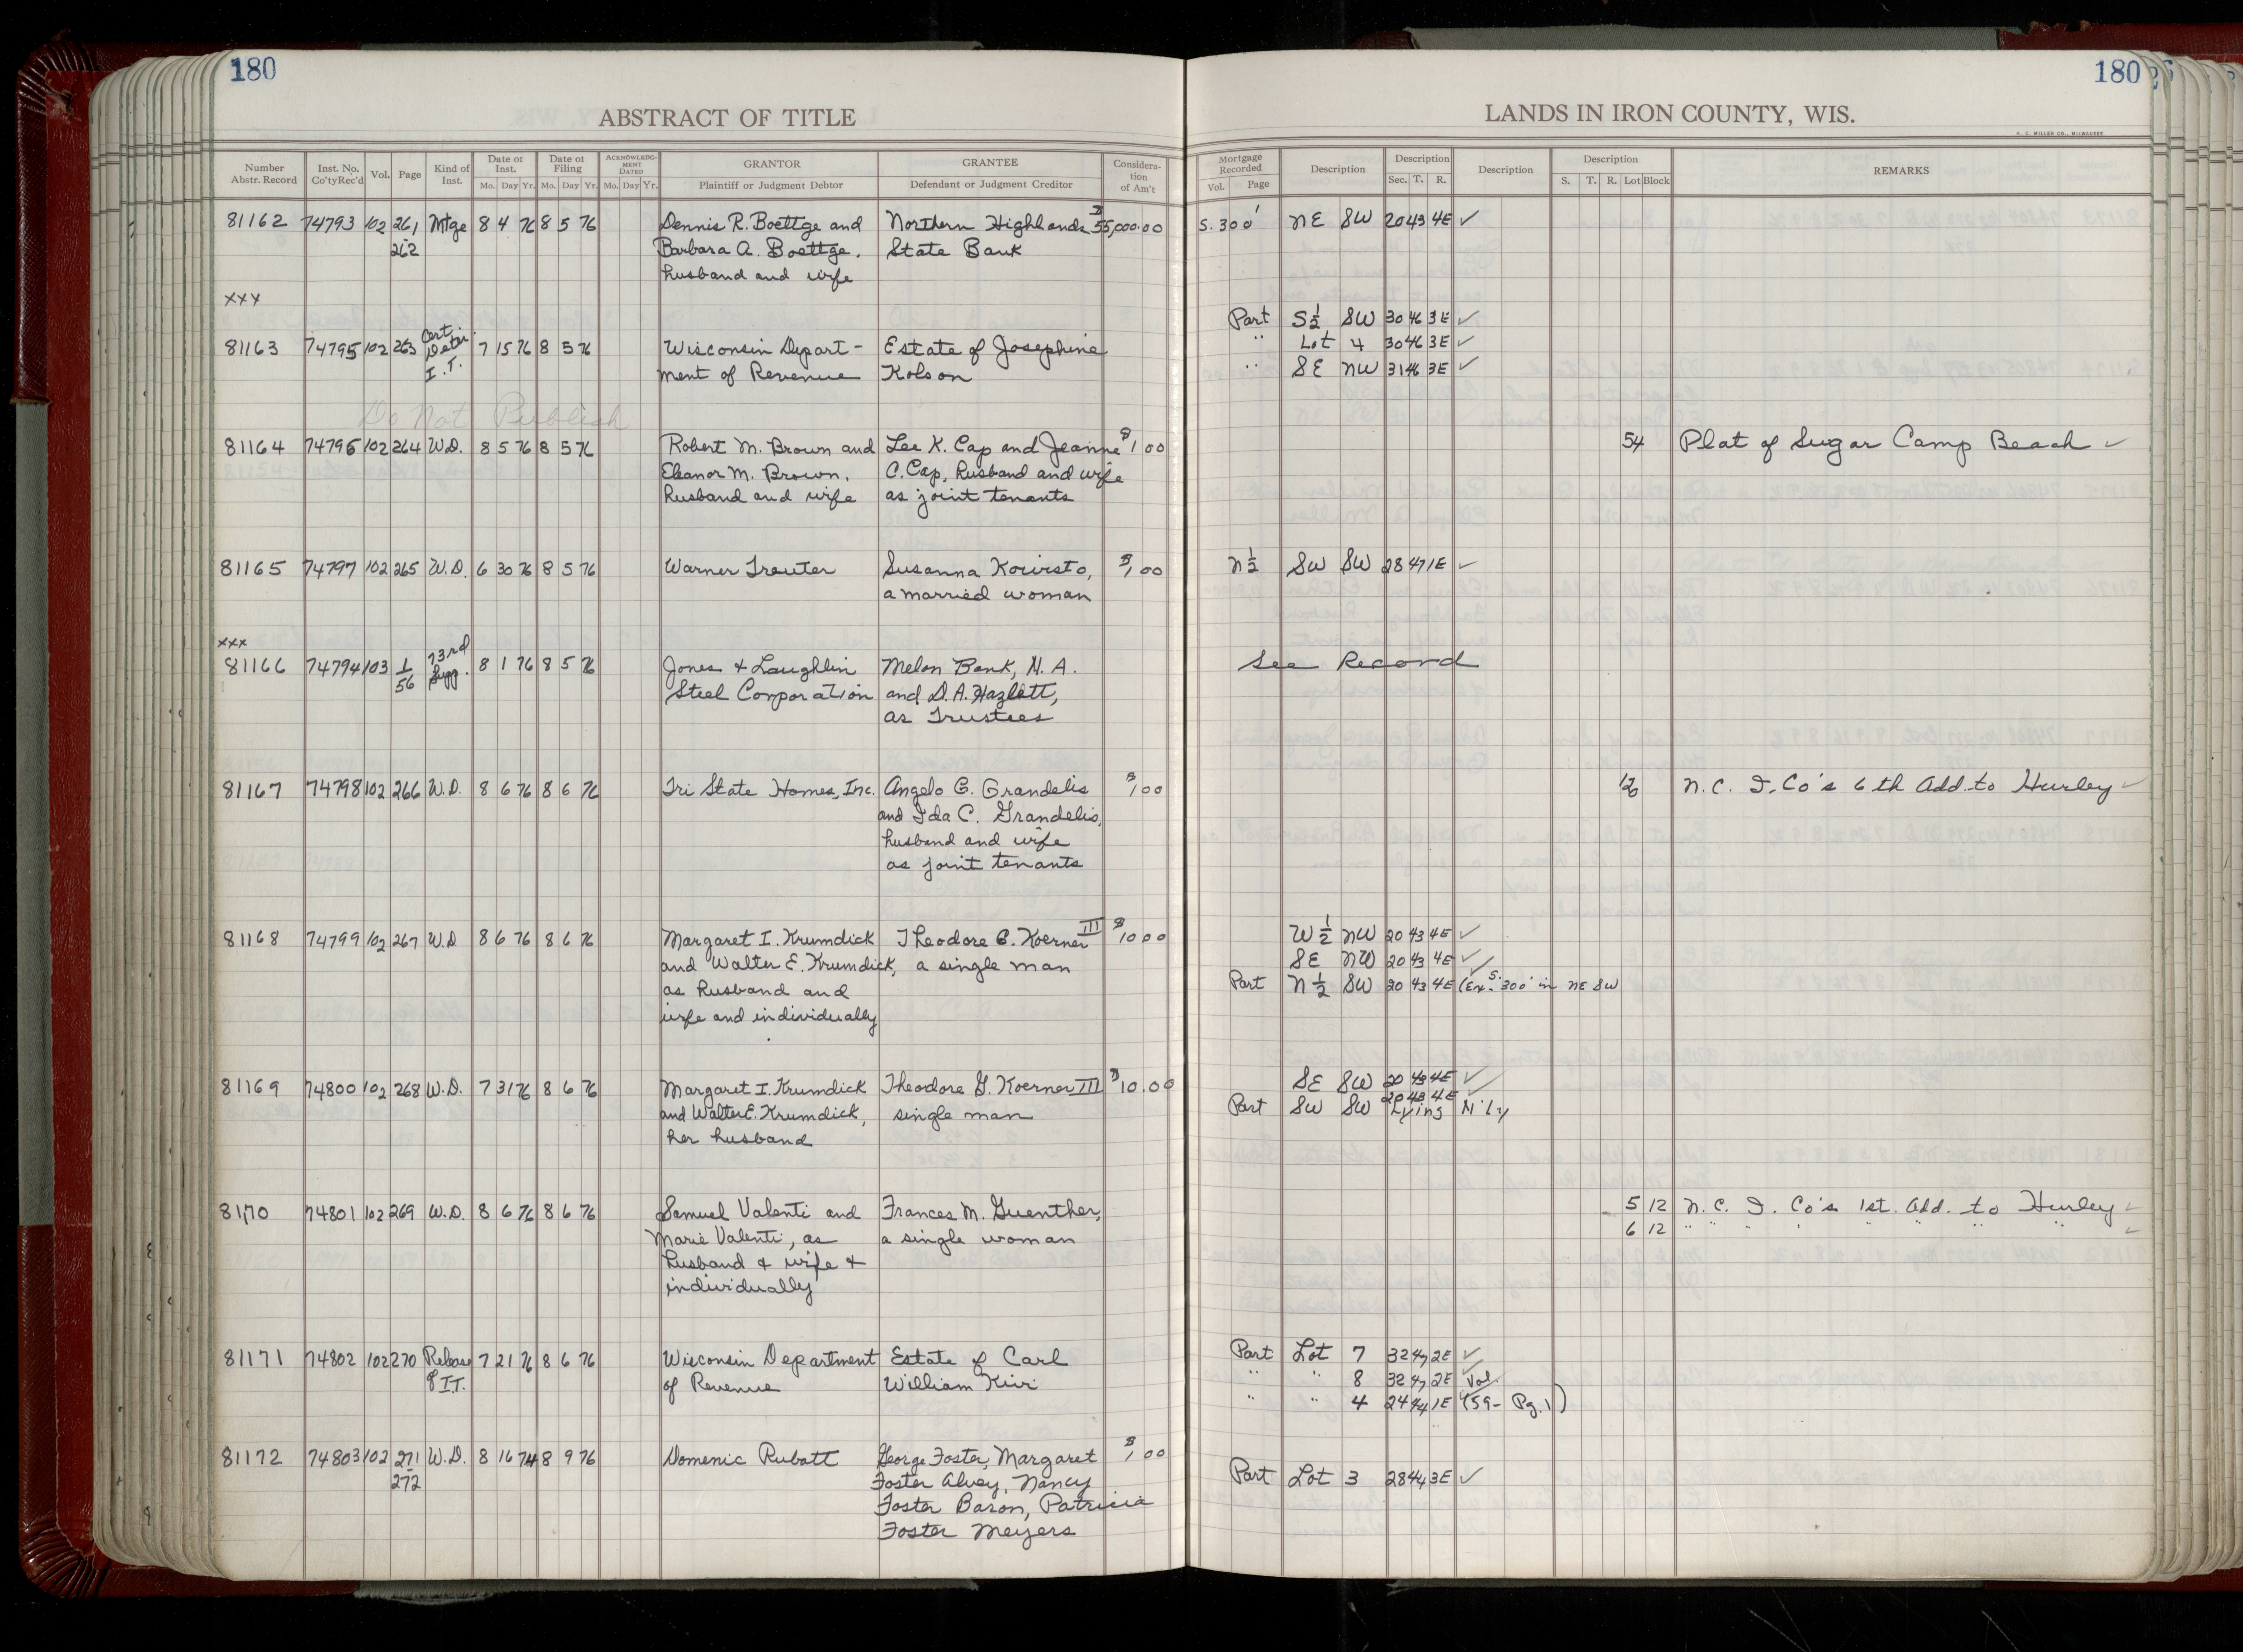 180
180
ABSTRACT OF TITLE
LANDS IN IRON COUNTY, WIS.
H. C. MILLER CO., MILWAUKEE
Number Abstr. Record Inst. No. Co'tyRec'd Vol. Page Kind of Inst. Date of Inst. Mo. Day Yr. Date of Filing Mo. Day Yr. ACKNOWLEDGMENT DATED Mo. Day Yr. GRANTOR Plaintiff or Judgment Debtor GRANTEE Defendant or Judgment Creditor Consideration of Am't
Mortgage Recorded Vol. Page Description Description Sec. T. R. Description Description S. T. R. Lot Block REMARKS
81162 74793 102 261 Mtge 8 4 76 8 5 76 Dennis R. Boettge and Northern Highlands $55,000.00 S. 300' NE SW 20 43 4E ✓
262 Barbara A. Boettge, State Bank
husband and wife
xxx
Part S½ SW 30 46 3E ✓
81163 74795 102 263 Cert. Deter. I.T. 7 15 76 8 5 76 Wisconsin Depart- Estate of Josephine " Lot 4 30 46 3E ✓
ment of Revenue Kolson " SE NW 31 46 3E ✓
Do Not Publish
81164 74796 102 264 W.D. 8 5 76 8 5 76 Robert M. Brown and Lee K. Cap and Jeanne $1 00 54 Plat of Sugar Camp Beach ✓
Eleanor M. Brown, C. Cap, husband and wife
husband and wife as joint tenants
81165 74797 102 265 W.D. 6 30 76 8 5 76 Warner Treuter Susanna Koivisto, $1,00 N½ SW SW 28 47 1E ✓
a married woman
xxx
81166 74794 103 1/56 73rd Supp. 8 1 76 8 5 76 Jones & Laughlin Melon Bank, N.A. See Record
Steel Corporation and D.A. Hazlett,
as Trustees
81167 74798 102 266 W.D. 8 6 76 8 6 76 Tri State Homes, Inc. Angelo G. Grandelis $1,00 N.C. I. Co's 6th Add. to Hurley ✓
and Ida C. Grandelis,
husband and wife
as joint tenants
81168 74799 102 267 W.D 8 6 76 8 6 76 Margaret I. Krumdick Theodore G. Koerner III $10 00 W½ NW 20 43 4E ✓
and Walter E. Krumdick, a single man SE NW 20 43 4E ✓
as husband and Part N½ SW 20 43 4E (Ex. S. 300' in NE SW
wife and individually
81169 74800 102 268 W.D. 7 31 76 8 6 76 Margaret I. Krumdick Theodore G. Koerner III $10.00 SE SW 20 43 4E ✓
and Walter E. Krumdick, single man Part SW SW 20 43 4E Lying N'ly ✓
her husband
81170 74801 102 269 W.D. 8 6 76 8 6 76 Samuel Valenti and Frances M. Guenther, 5 12 N.C. I. Co's 1st. Add. to Hurley ✓
Marie Valenti, as a single woman 6 12 " " " " " " " ✓
husband & wife &
individually
81171 74802 102 270 Release of I.T. 7 21 76 8 6 76 Wisconsin Department Estate of Carl Part Lot 7 32 47 2E ✓
of Revenue William Kivi " " 8 32 47 2E ✓
" " 4 24 44 1E (Vol. 59- Pg. 1)
81172 74803 102 271 W.D. 8 16 74 8 9 76 Domenic Rubatt George Foster, Margaret $1,00 Part Lot 3 28 44 3E ✓
272 Foster Alvey, Nancy
Foster Baron, Patricia
Foster Meyers